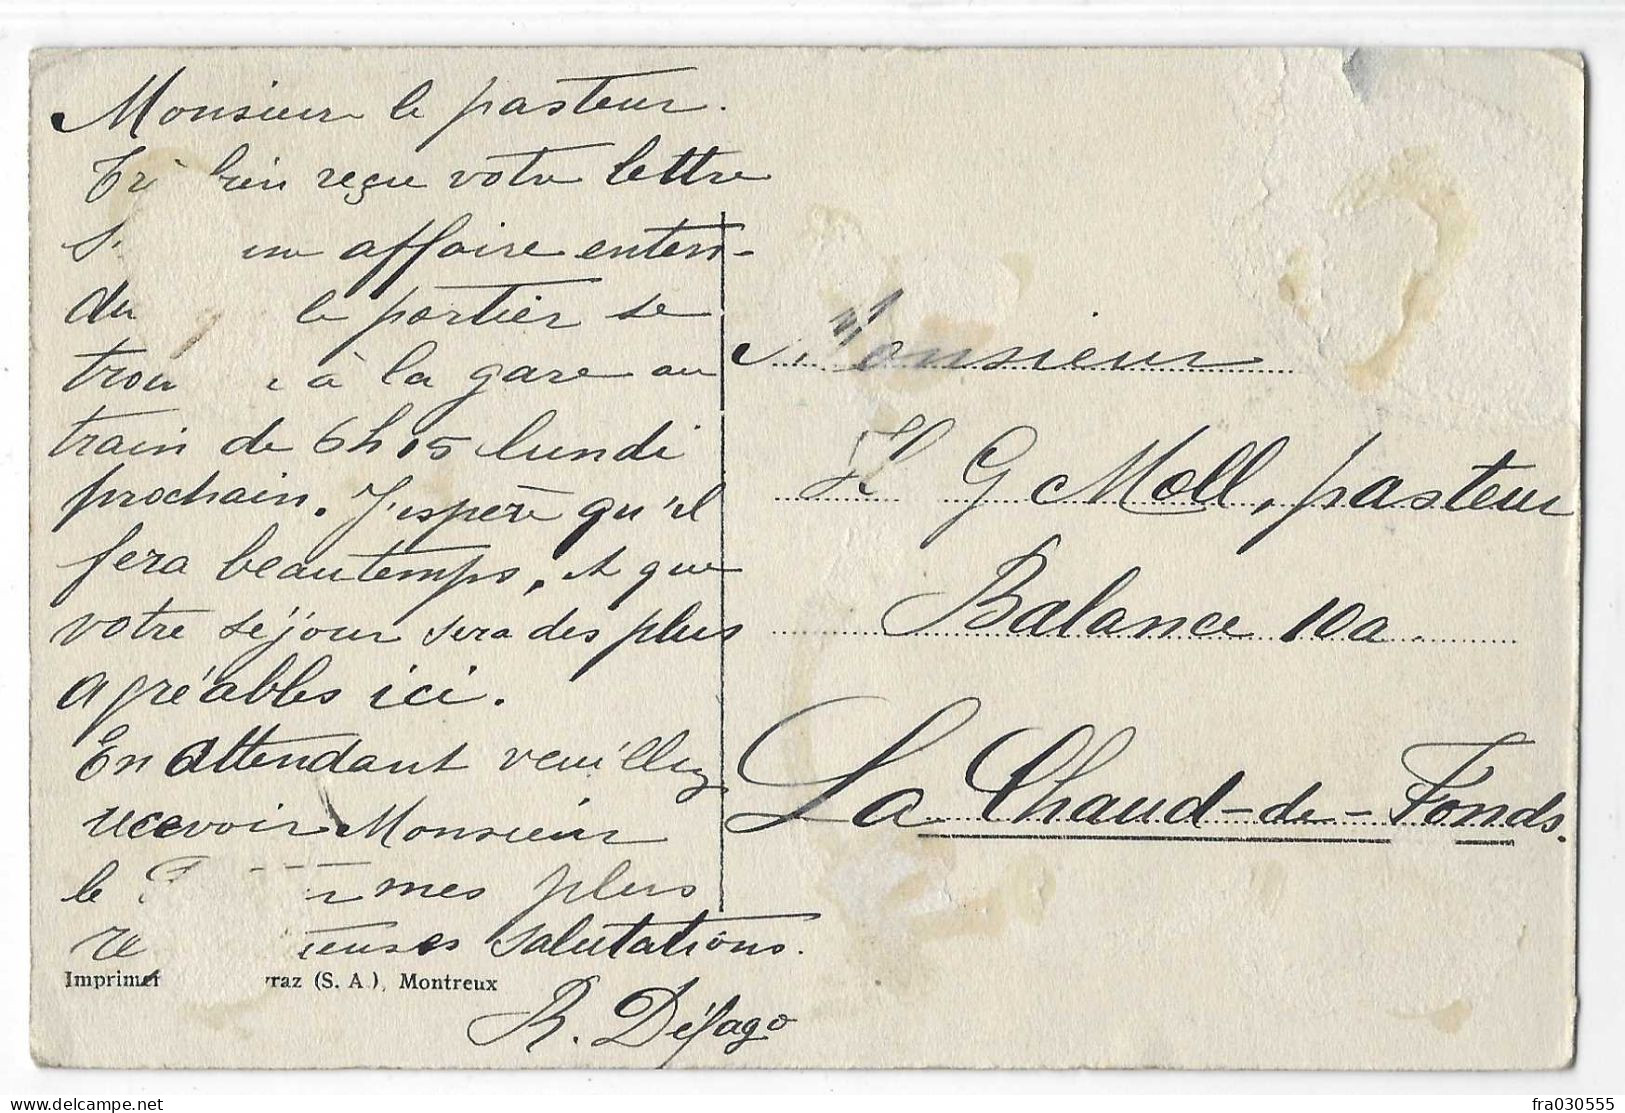 Monsieur le pasteur.
bien reçu votre lettre
affaire enten-
du le portier se
à la gare au
train de 6h 15 lundi
prochain. J'espère qu'il
fera beau temps, et que
votre séjour sera des plus
agréables ici.
En attendant veuillez
recevoir Monsieur
le mes plus
salutations.
R. Défago
Monsieur
H G Moll, pasteur
Balance 10a
La Chaud-de-Fonds.
(S. A.), Montreux
delcampe.net
fra030555